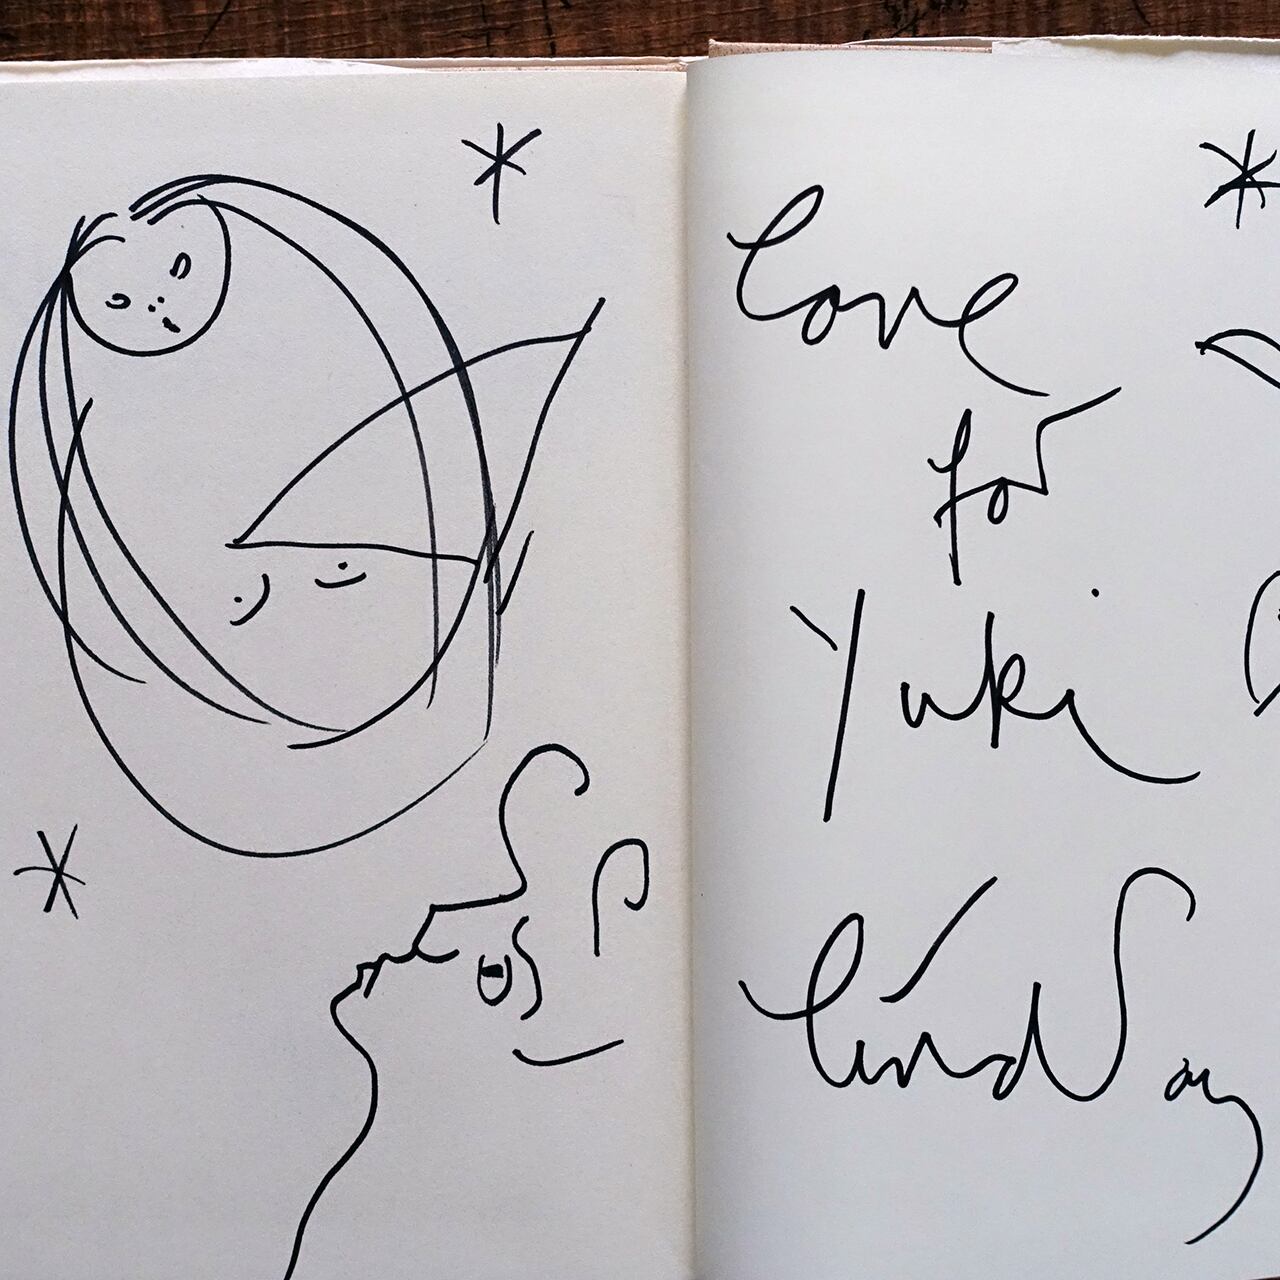 Love
for
Yuki
Lindsay